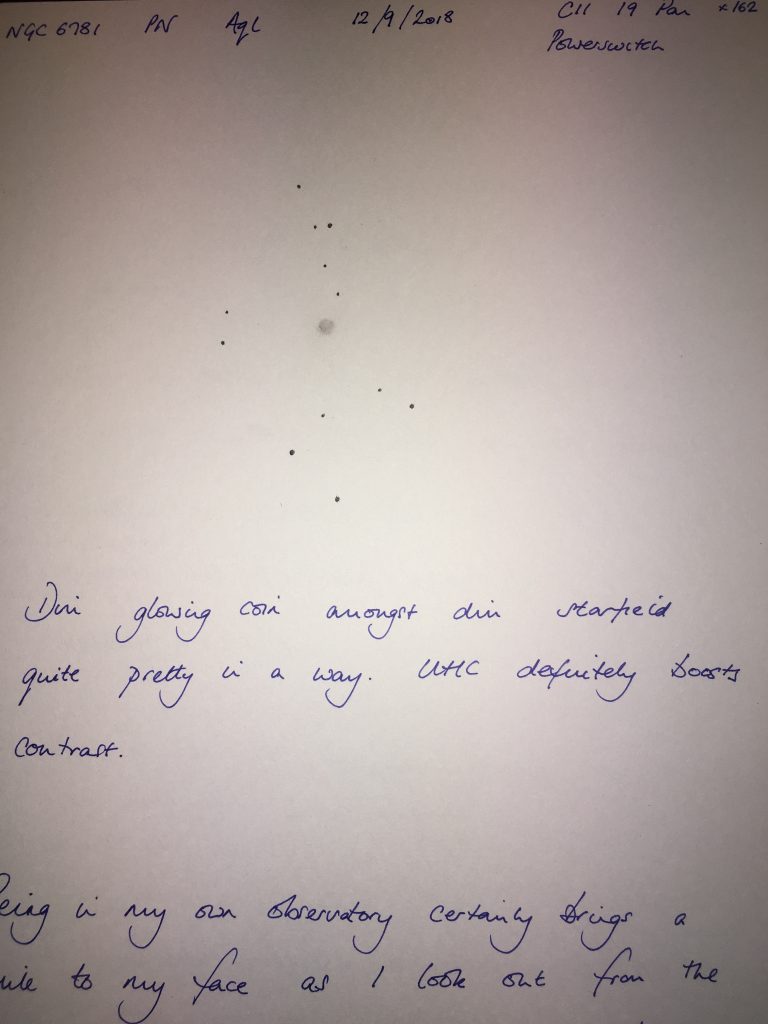 NGC 6781 PN AqL 12/9/2018 C11 19 Pan x162
Powerswitch
Dim glowing coin amongst dim starfield
quite pretty in a way. UHC definitely boosts
contrast.
Being in my own observatory certainly brings a
to my face as I look out from the